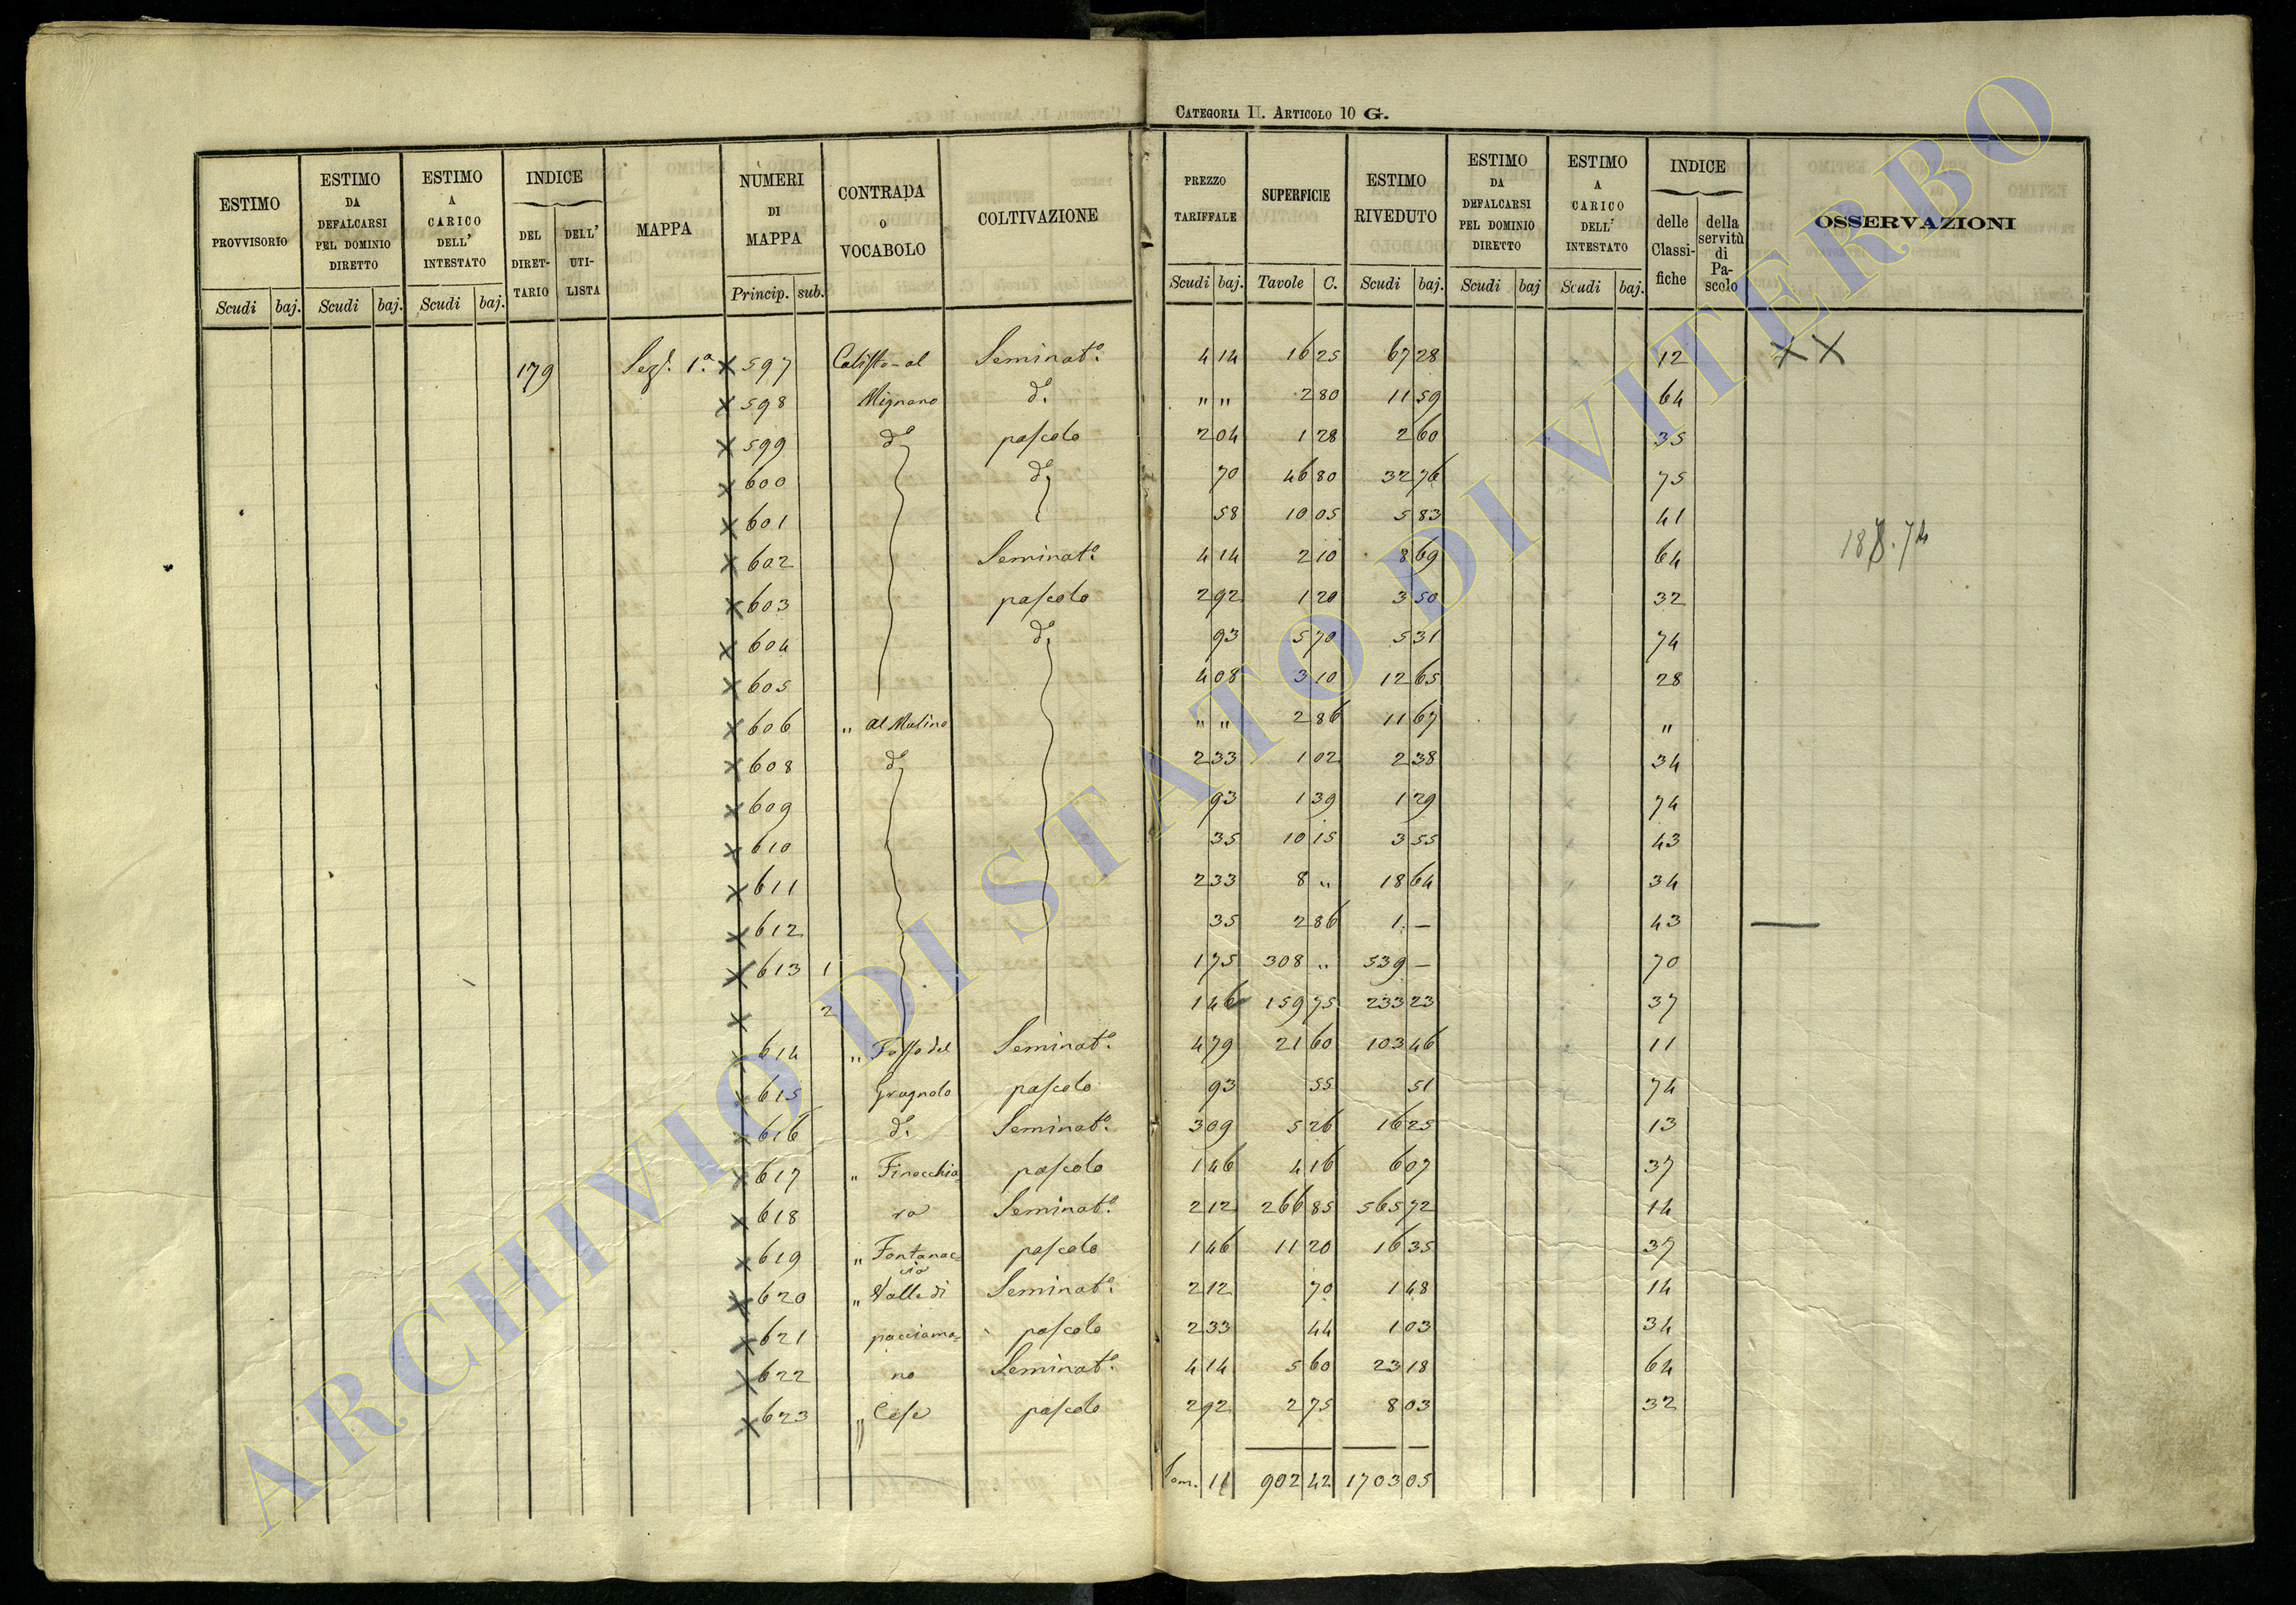 CATEGORIA II. ARTICOLO 10 G.
ESTIMO PROVVISORIO | ESTIMO DA DEFALCARSI PEL DOMINIO DIRETTO | ESTIMO A CARICO DELL' INTESTATO | INDICE DEL DIRET-TARIO | DELL' UTI-LISTA | MAPPA | NUMERI DI MAPPA | CONTRADA O VOCABOLO | COLTIVAZIONE | PREZZO TARIFFALE | SUPERFICIE | ESTIMO RIVEDUTO | ESTIMO DA DEFALCARSI PEL DOMINIO DIRETTO | ESTIMO A CARICO DELL' INTESTATO | INDICE delle Classi-fiche | della servitù di Pa-scolo | OSSERVAZIONI
Scudi | baj. | Scudi | baj. | Scudi | baj. | Princip. | sub. | Scudi | baj. | Tavole | C. | Scudi | baj. | Scudi | baj | Scudi | baj.
179 | Sez. 1.a | X 597 | Calisto al | Seminat.o | 4 14 | 16 25 | 67 28 | 12 | X X
X 598 | Mignano | d.o | " " | 2 80 | 11 59 | 64
X 599 | d.o | pascolo | 2 04 | 1 28 | 2 60 | 35
X 600 | d.o | 70 | 46 80 | 32 76 | 75
X 601 | 58 | 10 05 | 5 83 | 41
X 602 | Seminat.o | 4 14 | 2 10 | 8 69 | 64
X 603 | pascolo | 2 92 | 1 20 | 3 50 | 32
X 604 | d.o | 93 | 5 70 | 5 31 | 74
X 605 | 4 08 | 3 10 | 12 65 | 28
X 606 | " al Molino | " " | 2 86 | 11 67 | "
X 608 | d.o | 2 33 | 1 02 | 2 38 | 34
X 609 | 93 | 1 39 | 1 29 | 74
X 610 | 35 | 10 15 | 3 55 | 43
X 611 | 2 33 | 8 " | 18 64 | 34
X 612 | 35 | 2 86 | 1 — | 43 | —
X 613 | 1 | 1 75 | 308 " | 539 — | 70
X | 2 | 1 46 | 159 75 | 233 23 | 37
X 614 | " Fosso del | Seminat.o | 4 79 | 21 60 | 103 46 | 11
X 615 | Grugnolo | pascolo | 93 | 55 | 51 | 74
X 616 | d.o | Seminat.o | 3 09 | 5 26 | 16 25 | 13
X 617 | " Finocchia | pascolo | 1 46 | 4 16 | 6 07 | 37
X 618 | ra | Seminat.o | 2 12 | 266 85 | 565 72 | 14
X 619 | " Fontanac=cia | pascolo | 1 46 | 11 20 | 16 35 | 37
X 620 | " Valle di | Seminat.o | 2 12 | 70 | 1 48 | 14
X 621 | pacciama= | pascolo | 2 33 | 44 | 1 03 | 34
X 622 | no | Seminat.o | 4 14 | 5 60 | 23 18 | 64
X 623 | " Cese | pascolo | 2 92 | 2 75 | 8 03 | 32
Som. 11 | 902 42 | 1703 05
ARCHIVIO DI STATO DI VITERBO